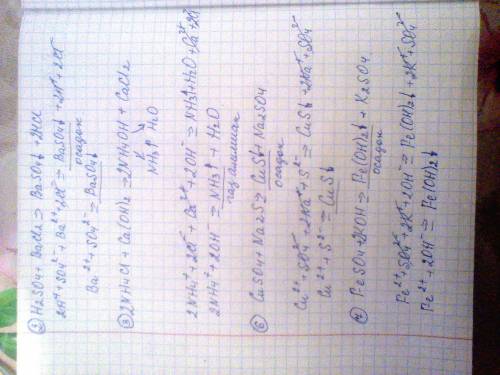 ② H2SO4 + BaCl2 ⇒ BaSO4↓ + 2HCl
осадок
2H⁺ + SO4²⁻ + Ba²⁺ + 2Cl⁻ ⇒ BaSO4↓ + 2H⁺ + 2Cl⁻
осадок
Ba²⁺ + SO4²⁻ ⇒ BaSO4↓
③ 2NH4Cl + Ca(OH)2 ⇒ 2NH4OH + CaCl2
NH3↑ H2O
2NH4⁺ + 2Cl⁻ + Ca²⁺ + 2OH⁻ ⇒ NH3↑ + H2O + Ca²⁺ + 2Cl⁻
2NH4⁺ + 2OH⁻ ⇒ NH3↑ + H2O
газ аммиак
⑥ CuSO4 + Na2S ⇒ CuS↓ + Na2SO4
осадок
Cu²⁺ + SO4²⁻ + 2Na⁺ + S²⁻ ⇒ CuS↓ + 2Na⁺ + SO4²⁻
Cu²⁺ + S²⁻ ⇒ CuS↓
⑦ FeSO4 + 2KOH ⇒ Fe(OH)2↓ + K2SO4
осадок
Fe²⁺ + SO4²⁻ + 2K⁺ + 2OH⁻ ⇒ Fe(OH)2↓ + 2K⁺ + SO4²⁻
Fe²⁺ + 2OH⁻ ⇒ Fe(OH)2↓